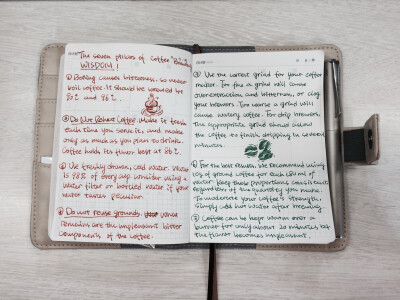 The seven pillars of coffee
WISDOM!
① Boiling causes bitterness, so never
boil coffee. It should be brewed at
② Do Not Reheat Coffee. Make it fresh
each time you serve it, and make
only as much as you plan to drink.
Coffee holds its flavor best at 86°C.
③ Use freshly drawn, cold water. Water
is 98% of every cup. Consider using a
water filter or bottled water if your
water tastes peculiar.
④ Do not reuse grounds. once
remains are the unpleasant bitter
components of the coffee.
⑤ Use the correct grind for your coffee
maker. Too fine a grind will cause
overextraction and bitterness, or clog
your brewers. Too coarse a grind will
cause watery coffee. For drip brewers,
the appropriate grind should cause
the coffee to finish dripping in several
minutes.
⑥ For the best results, we recommend using
of ground coffee for each of
water. Keep these proportions constant
regardless of the quantity you make.
To moderate your coffee's strength,
simply add hot water after brewing.
⑦ Coffee can be kept warm over a
burner for only about 20 minutes bef
the flavor becomes unpleasant.